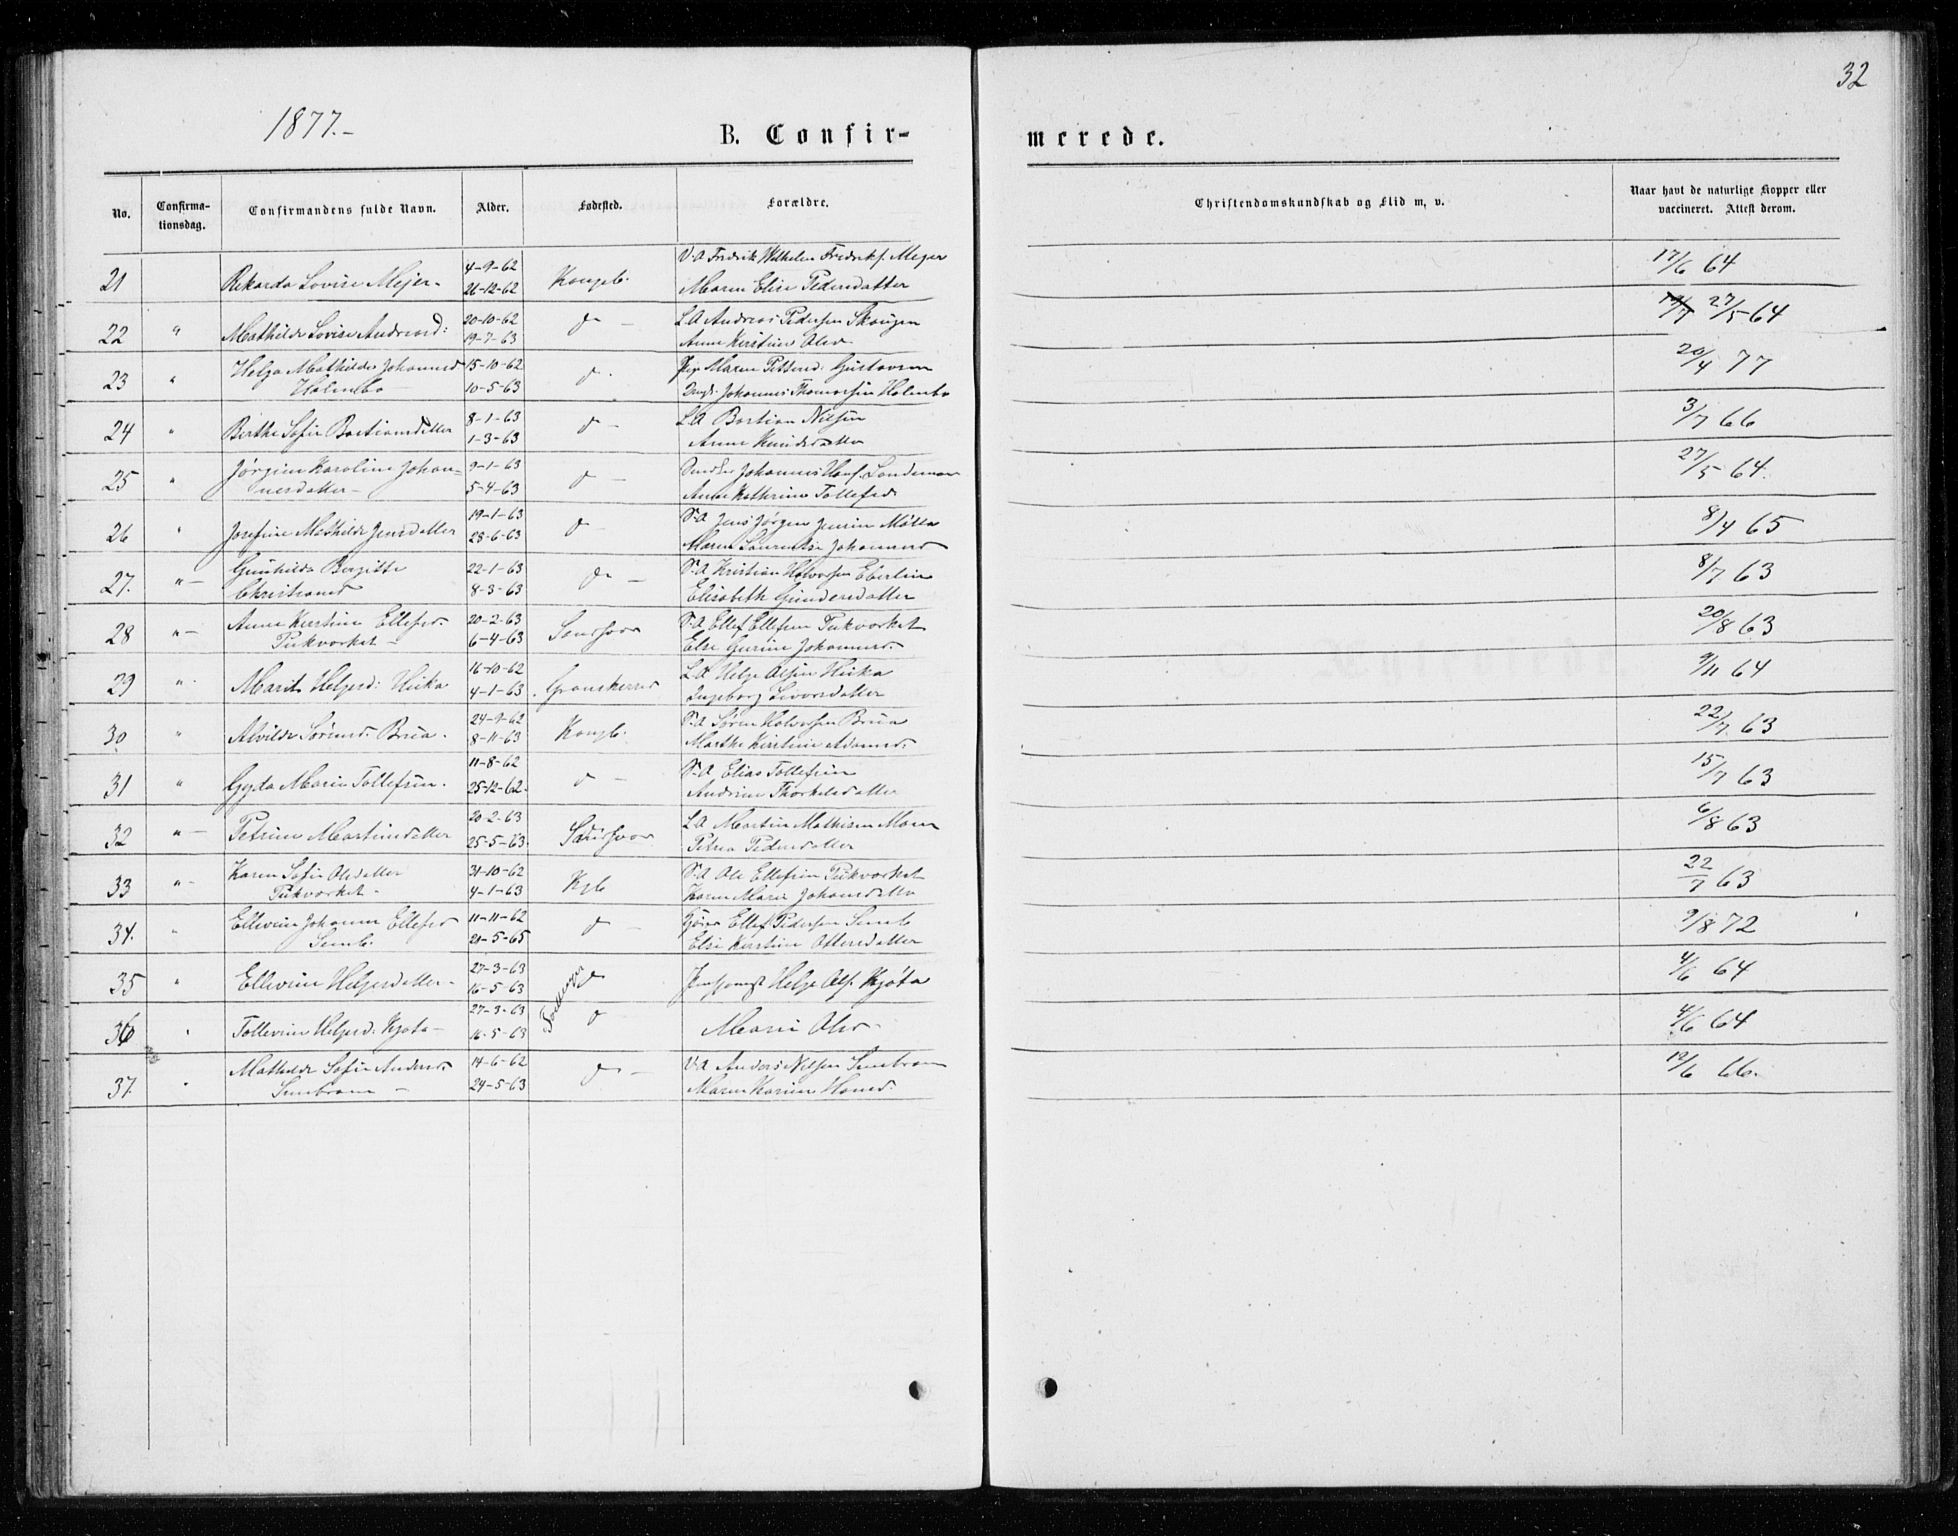 32
1877.-
B. Confir- merede.
No. Confirma- tionsdag. Confirmandens fulde Navn. Alder. Fødested. Forældre. Christendomskundskab og Flid m. v. Naar havt de naturlige Kopper eller vaccineret. Attest derom.
V.A Fredrik Wilhelm Fredrikf. Mejer
21 Rikarda Lovise Mejer 4-9-62 Kongsb. 17/6 64
26-12-62 Maren Elise Pedersdatter
22 " Mathilde Lovise Andreasd: 20-10-62 do - L.A Andreas Pedersen Skougen 27/5 64
19-7-63 Anne Kirstine Olsd.
23 " Helga Mathilde Johannesd 15-10-62 do Pige Maren Gustavsen 20/4 77
Holmbo 10-5-63 Johannes Thomassen Holmbo
24 " Birthe Sofie Bastiansdatter 8-1-63 do - L.A Bastian Nilsen 3/7 66
1-3-63 Anne Knudsdatter
25 " Jørgine Karoline Johan- 9-1-63 do - Johannes Landsman 27/5 64.
nesdatter - 5-4-63 Anne Kathrine Tollefsd.
26 " Josefine Mathilde Jensdatter 19-1-63 do S.A Jens Jørgen Jensen 8/4 65
28-6-63 Maren Laurentse Johannesd
27. "- Gunhilda Birgitte 22-1-63 do - S.A Kristian Halvorsen Eberlin 8/7 63
Christiansd 8-3-63 Elisabeth Gundersdatter
28 "- Anne Kirstine Ellefsd. 20-2-63 Sandsvær S.A Ellef Ellefsen Pukverket 20/8 63
Pukverket - 6-4-63 Else Gurine Johannesd.
29 " Marit Helgesd: Hvika 16-10-62 Granskerred L.A Helge Olsen Hvika 9/11 64
4-1-63 Ingeborg Sivorsdatter
30 " Alvilde Sørensd. Brua. 24-9-62 Kongb. S.A Søren Halvorsen Brua 22/7 63
8-11-63 Marthe Kirstine Adamsd.
31 " Gyda Marie Tollefsen. 11-8-62 do - S.A Elias Tollefsen 15/7 63
25-12-62 Andrine Thorkelsdatter
32 "- Petrine Martinsdatter 20-2-63 Sandsvær L.A Martin Mathisen Moen 6/8 63
25-5-63 Petrea Pedersdatter
33 "- Karen Sofie Olsdatter 31-10-62 Kgb S.A Ole Ellefsen Pukverket 22/7 63
Pukverket - 4-1-63 Karen Marie Johansdatter
34. " Ellevine Johanne Ellefsd 11-11-62 do - Ellef Pedersen Semb 9/8 72
Semb. 21-5-65 Else Kirstine Ottersdatter
35 " Ellevine Helgesdatter 27-3-63 Tvillinger do Helge Olsf. Kjøta 4/6 64
16-5-63
36 " Tollevine Helgesd: Kjøta - 27-3-63 do Marie Olsd. 4/6 64
16-5-63
37. " Mathilde Sofie Andersd. 14-6-62 do - V.A Anders Nilsen Sembraaen 12/6 66.
Sembraaen - 24-5-63 Maren Karine Hansd.